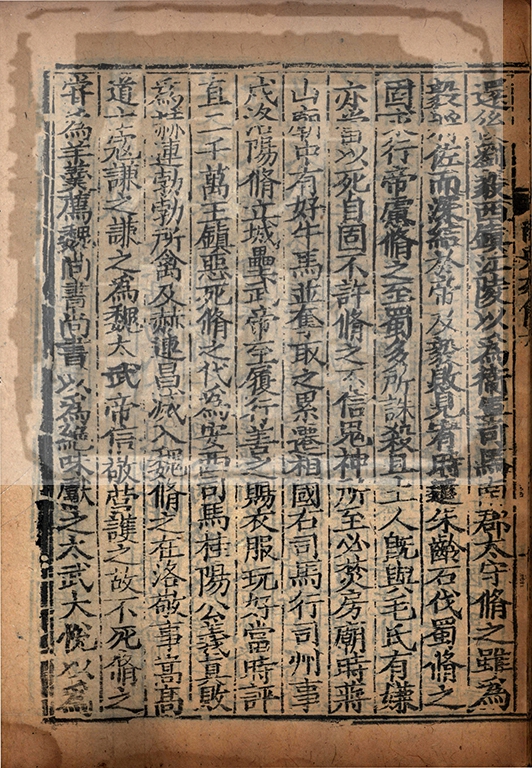 還後劉毅西鎮江陵以爲衛軍司馬南郡太守脩之雖爲
毅將佐而深結於帝及毅敗見宥時遣朱齡石伐蜀脩之
固求行帝慮脩之至蜀多所誅殺且土人旣與毛氏有嫌
亦當以死自固不許脩之不信鬼神所至必焚房廟時蔣
山廟中有好牛馬並奪取之累遷相國右司馬行司州事
戍洛陽脩立城壘武帝至履行善之賜衣服玩好當時評
直二千萬王鎮惡死脩之代爲安西司馬桂陽公義真敗
爲赫連勃勃所禽及赫連昌滅入魏脩之在洛敬事嵩高
道士寇謙之謙之爲魏太武帝信敬營護之故不死脩之
嘗爲羊羹薦魏尚書尚書以爲絕味獻之太武大悅以爲